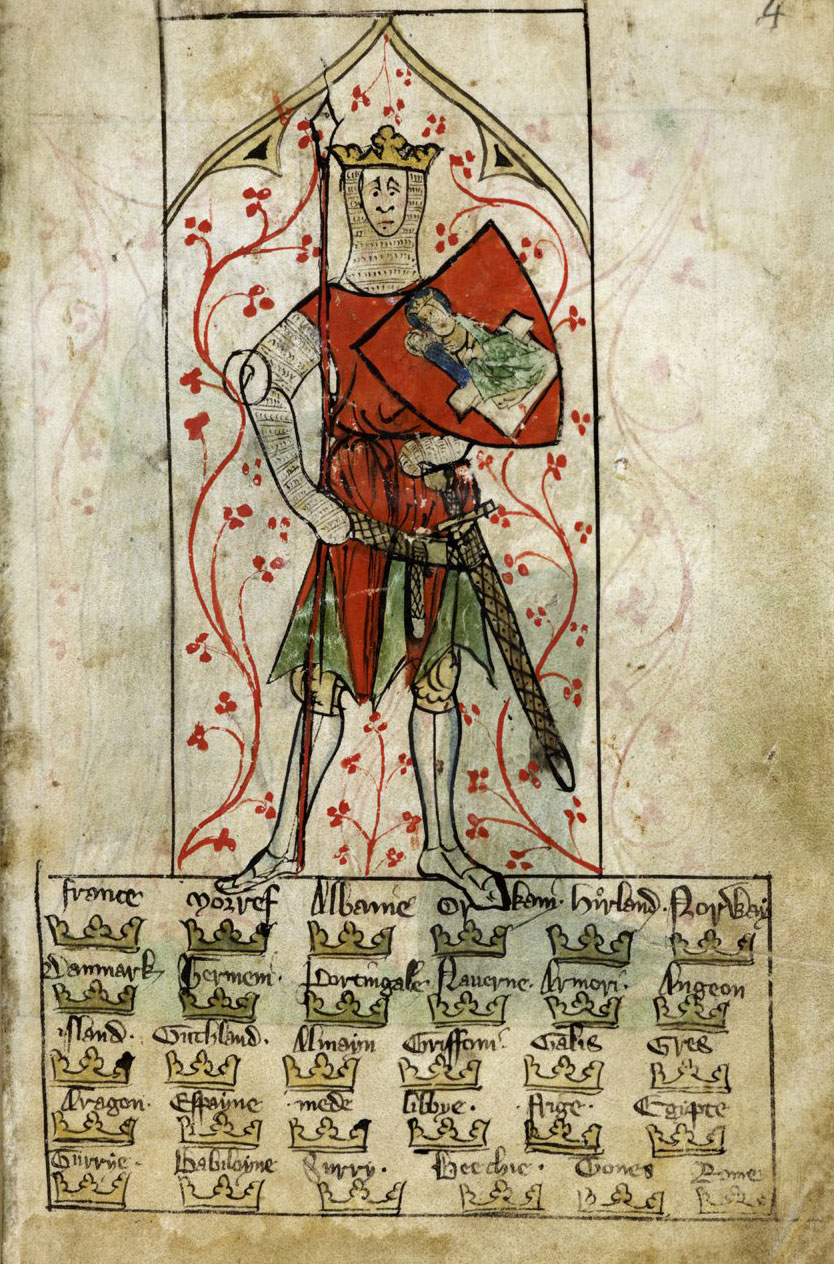 4
france norref Albanie Orkani hirland Norway
Danmark Germeni Portingale Naverne Armori Angeon
island Guthland Almayn Griffoni Galis Gres
Aragon Espayne mede libbye Arge Egipte
Surrye Babiloyne Surry Beechie Gones